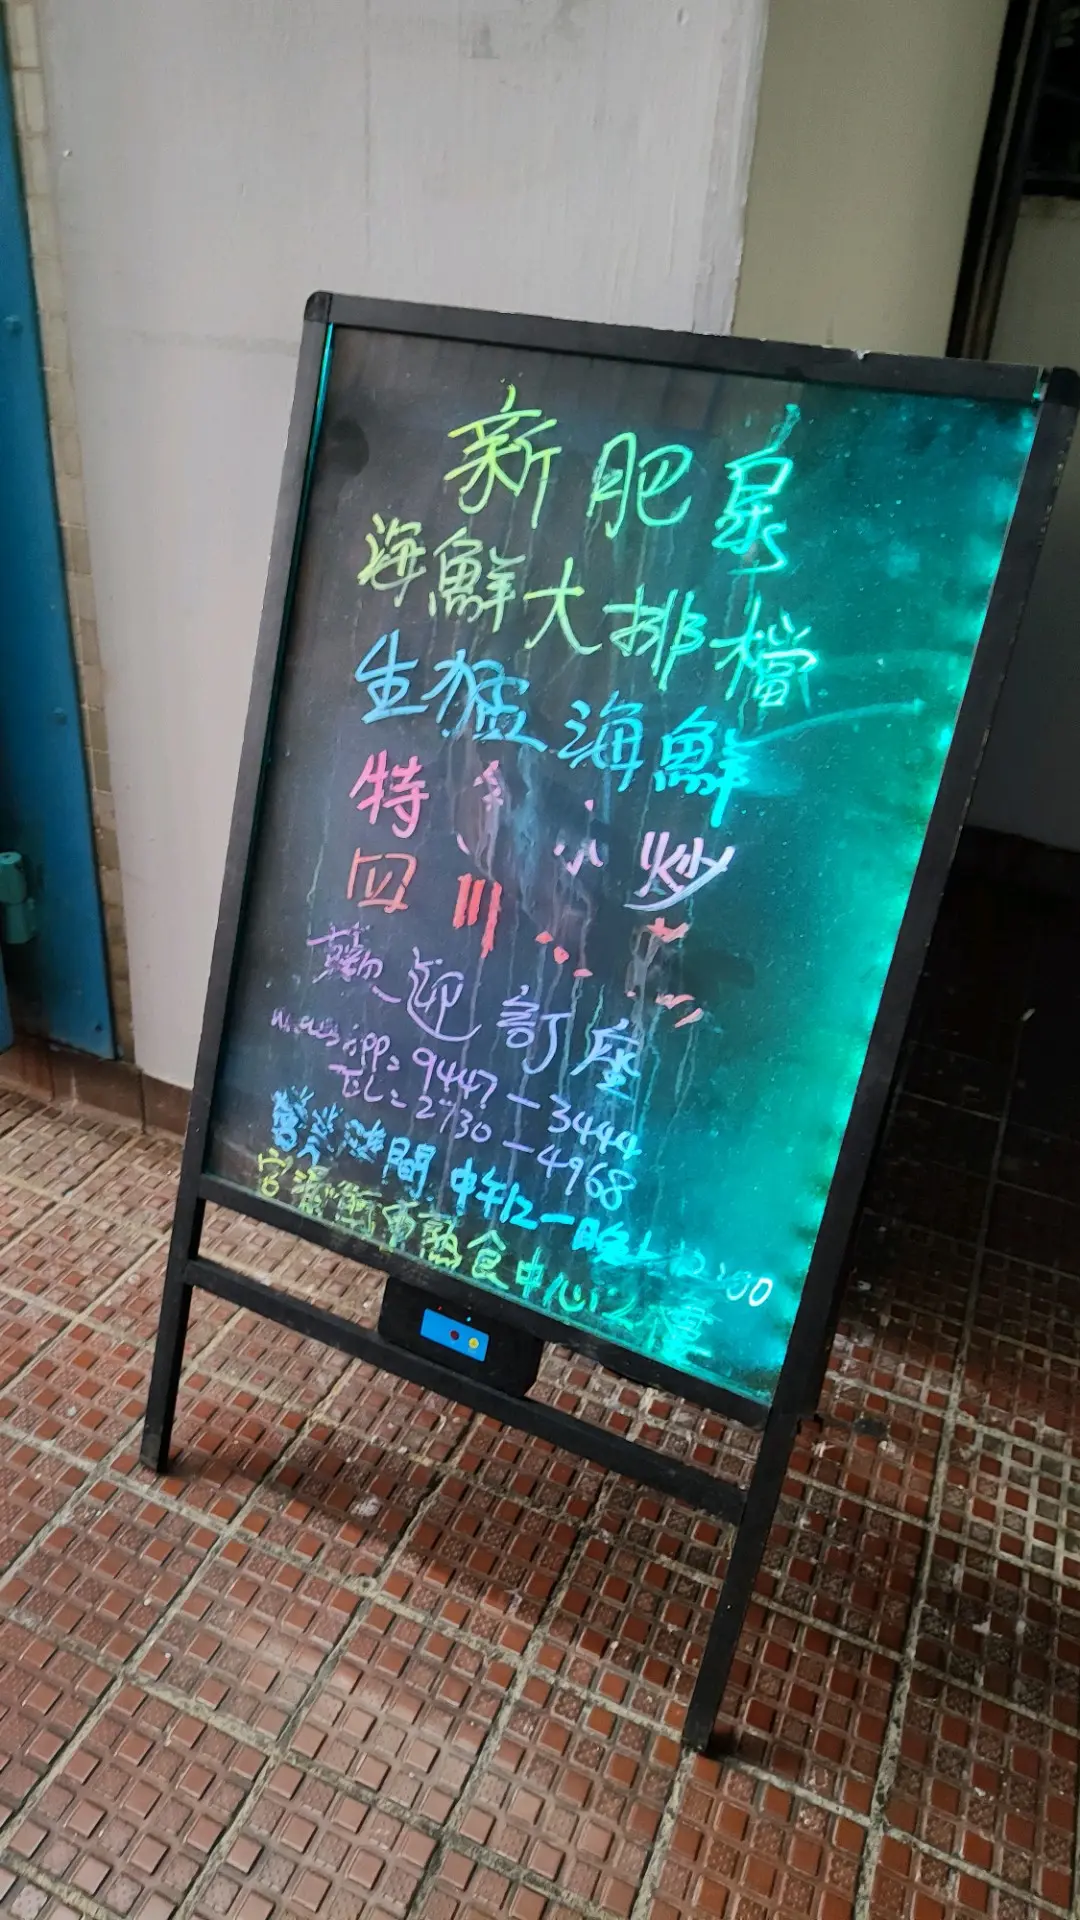 新肥泉
海鮮大排檔
生猛海鮮
特 小炒
四川
歡迎訂座
whatsapp: 9447-3444
TEL: 2730-4968
營業時間 中午12-晚上10:00
熟食中心2樓